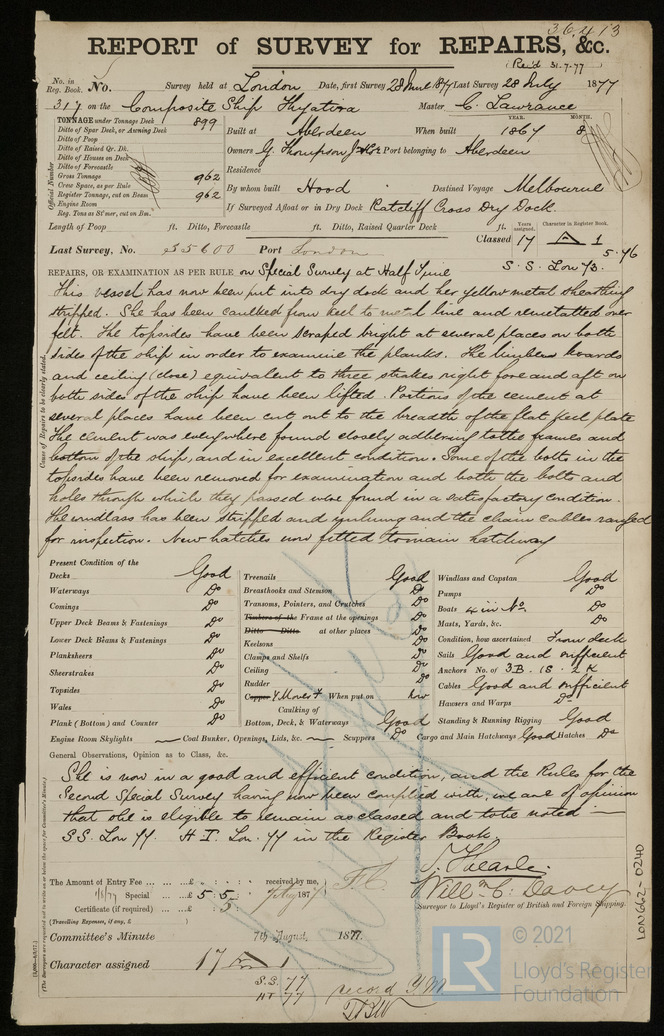 36413
REPORT of SURVEY for REPAIRS, &c.
(Rec'd 31.7.77)
No. in Reg. Book. No. Survey held at London Date, first Survey 28 June 1877 Last Survey 28 July 1877
317 on the Composite Ship Thyatira Master C. Lawrance
TONNAGE under Tonnage Deck 899
Ditto of Spar Deck, or Awning Deck
Ditto of Poop
Ditto of Raised Qr. Dk.
Ditto of Houses on Deck
Ditto of Forecastle
Gross Tonnage 962
Crew Space, as per Rule
Register Tonnage, cut on Beam 962
Engine Room
Reg. Tons as St'mer, cut on Bm.
Official Number
YEAR. MONTH.
Built at Aberdeen When built 1867 8
Owners G. Thompson Jr & Co Port belonging to Aberdeen
Residence
By whom built Hood Destined Voyage Melbourne
If Surveyed Afloat or in Dry Dock Ratcliff Cross Dry Dock.
Length of Poop ft. Ditto, Forecastle ft. Ditto, Raised Quarter Deck ft.
Years assigned. Character in Register Book.
Classed 17 A 1
Last Survey, No. 35600 Port London
5.76
S. S. Lon 73.
REPAIRS, OR EXAMINATION AS PER RULE on Special Survey at Half Time
Cause of Repairs to be clearly stated.
This vessel has now been put into dry dock and her yellow metal sheathing
stripped. She has been caulked from keel to metal line and remetalled over
felt. The topsides have been scraped bright at several places on both
sides of the ship in order to examine the planks. The limbers boards
and ceiling (close) equivalent to three strakes right fore and aft on
both sides of the ship have been lifted. Portions of the cement at
several places have been cut out to the breadth of the flat keel plate
The cement was everywhere found closely adhering to the frames and
bottom of the ship, and in excellent condition. Some of the bolts in the
topsides have been removed for examination and both the bolts and
holes through which they passed were found in a satisfactory condition.
The windlass has been stripped and unhung and the chain cables ranged
for inspection. New hatches now fitted to main hatchway
Present Condition of the
Decks Good
Waterways Do
Comings Do
Upper Deck Beams & Fastenings Do
Lower Deck Beams & Fastenings Do
Planksheers Do
Sheerstrakes Do
Topsides Do
Wales Do
Plank (Bottom) and Counter Do
Treenails Good
Breasthooks and Stemson Do
Transoms, Pointers, and Crutches Do
Timbers of the Frame at the openings Do
Ditto Ditto at other places Do
Keelsons Do
Clamps and Shelfs Do
Ceiling Do
Rudder Do
Copper When put on Now
Caulking of
Bottom, Deck, & Waterways Good
Windlass and Capstan Good
Pumps Do
Boats 4 in No. Do
Masts, Yards, &c. Do
Condition, how ascertained From deck
Sails Good and sufficient
Anchors No. of 3B. 1S. 2K
Cables Good and sufficient
Hawsers and Warps Do
Standing & Running Rigging Good
Engine Room Skylights — Coal Bunker, Openings, Lids, &c. — Scuppers Do Cargo and Main Hatchways Good Hatches Do
General Observations, Opinion as to Class, &c.
She is now in a good and efficient condition, and the Rules for the
Second Special Survey having now been complied with, we are of opinion
that she is eligible to remain as classed and to be noted —
S.S. Lon 77. H.T. Lon. 77 in the Register Book.
The Amount of Entry Fee ... ... £ : : received by me,
Special ... ... £ 5 : 5 : 187
Certificate (if required) ... £ : 5 :
(Travelling Expenses, if any, £ )
Will m C. Davey
Surveyor to Lloyd's Register of British and Foreign Shipping.
Committee's Minute 7th August, 1877.
Character assigned 17 A 1
S.S. 77
HT 77
record Y.M.
LON662-0240
LR
© 2021
Lloyd's Register
Foundation